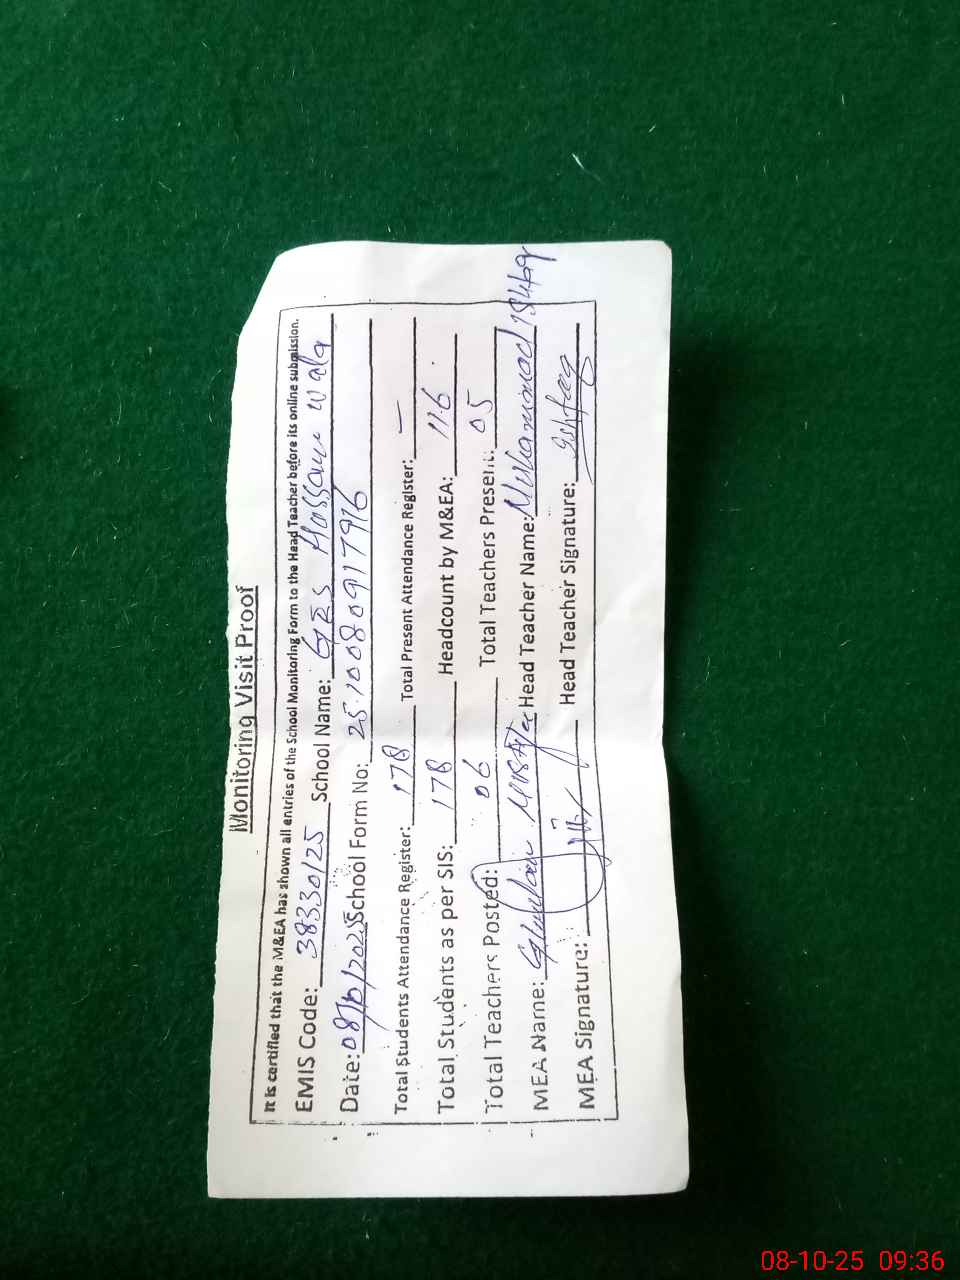 Monitoring Visit Proof
It is certified that the M&EA has shown all entries of the School Monitoring Form to the Head Teacher before its online submission.
EMIS Code: 38330125 School Name: GES Hassan wala
Date: 08/10/2025 School Form No: 2510080917976
Total Students Attendance Register: 178 Total Present Attendance Register: —
Total Students as per SIS: 178 Headcount by M&EA: 116
Total Teachers Posted: 06 Total Teachers Present: 05
MEA Name: Ghulam Mustafa Head Teacher Name: Muhammad Ishfaq
MEA Signature: Head Teacher Signature: Ishfaq
08-10-25 09:36